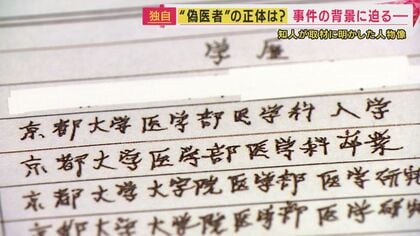 独自 “偽医者”の正体は? 事件の背景に迫る―
知人が取材に明かした人物像
学歴
京都大学医学部医学科 入学
京都大学医学部医学科 卒業
京都大学大学院医学部 医学研究
京都大学大学院医学部 医学研究